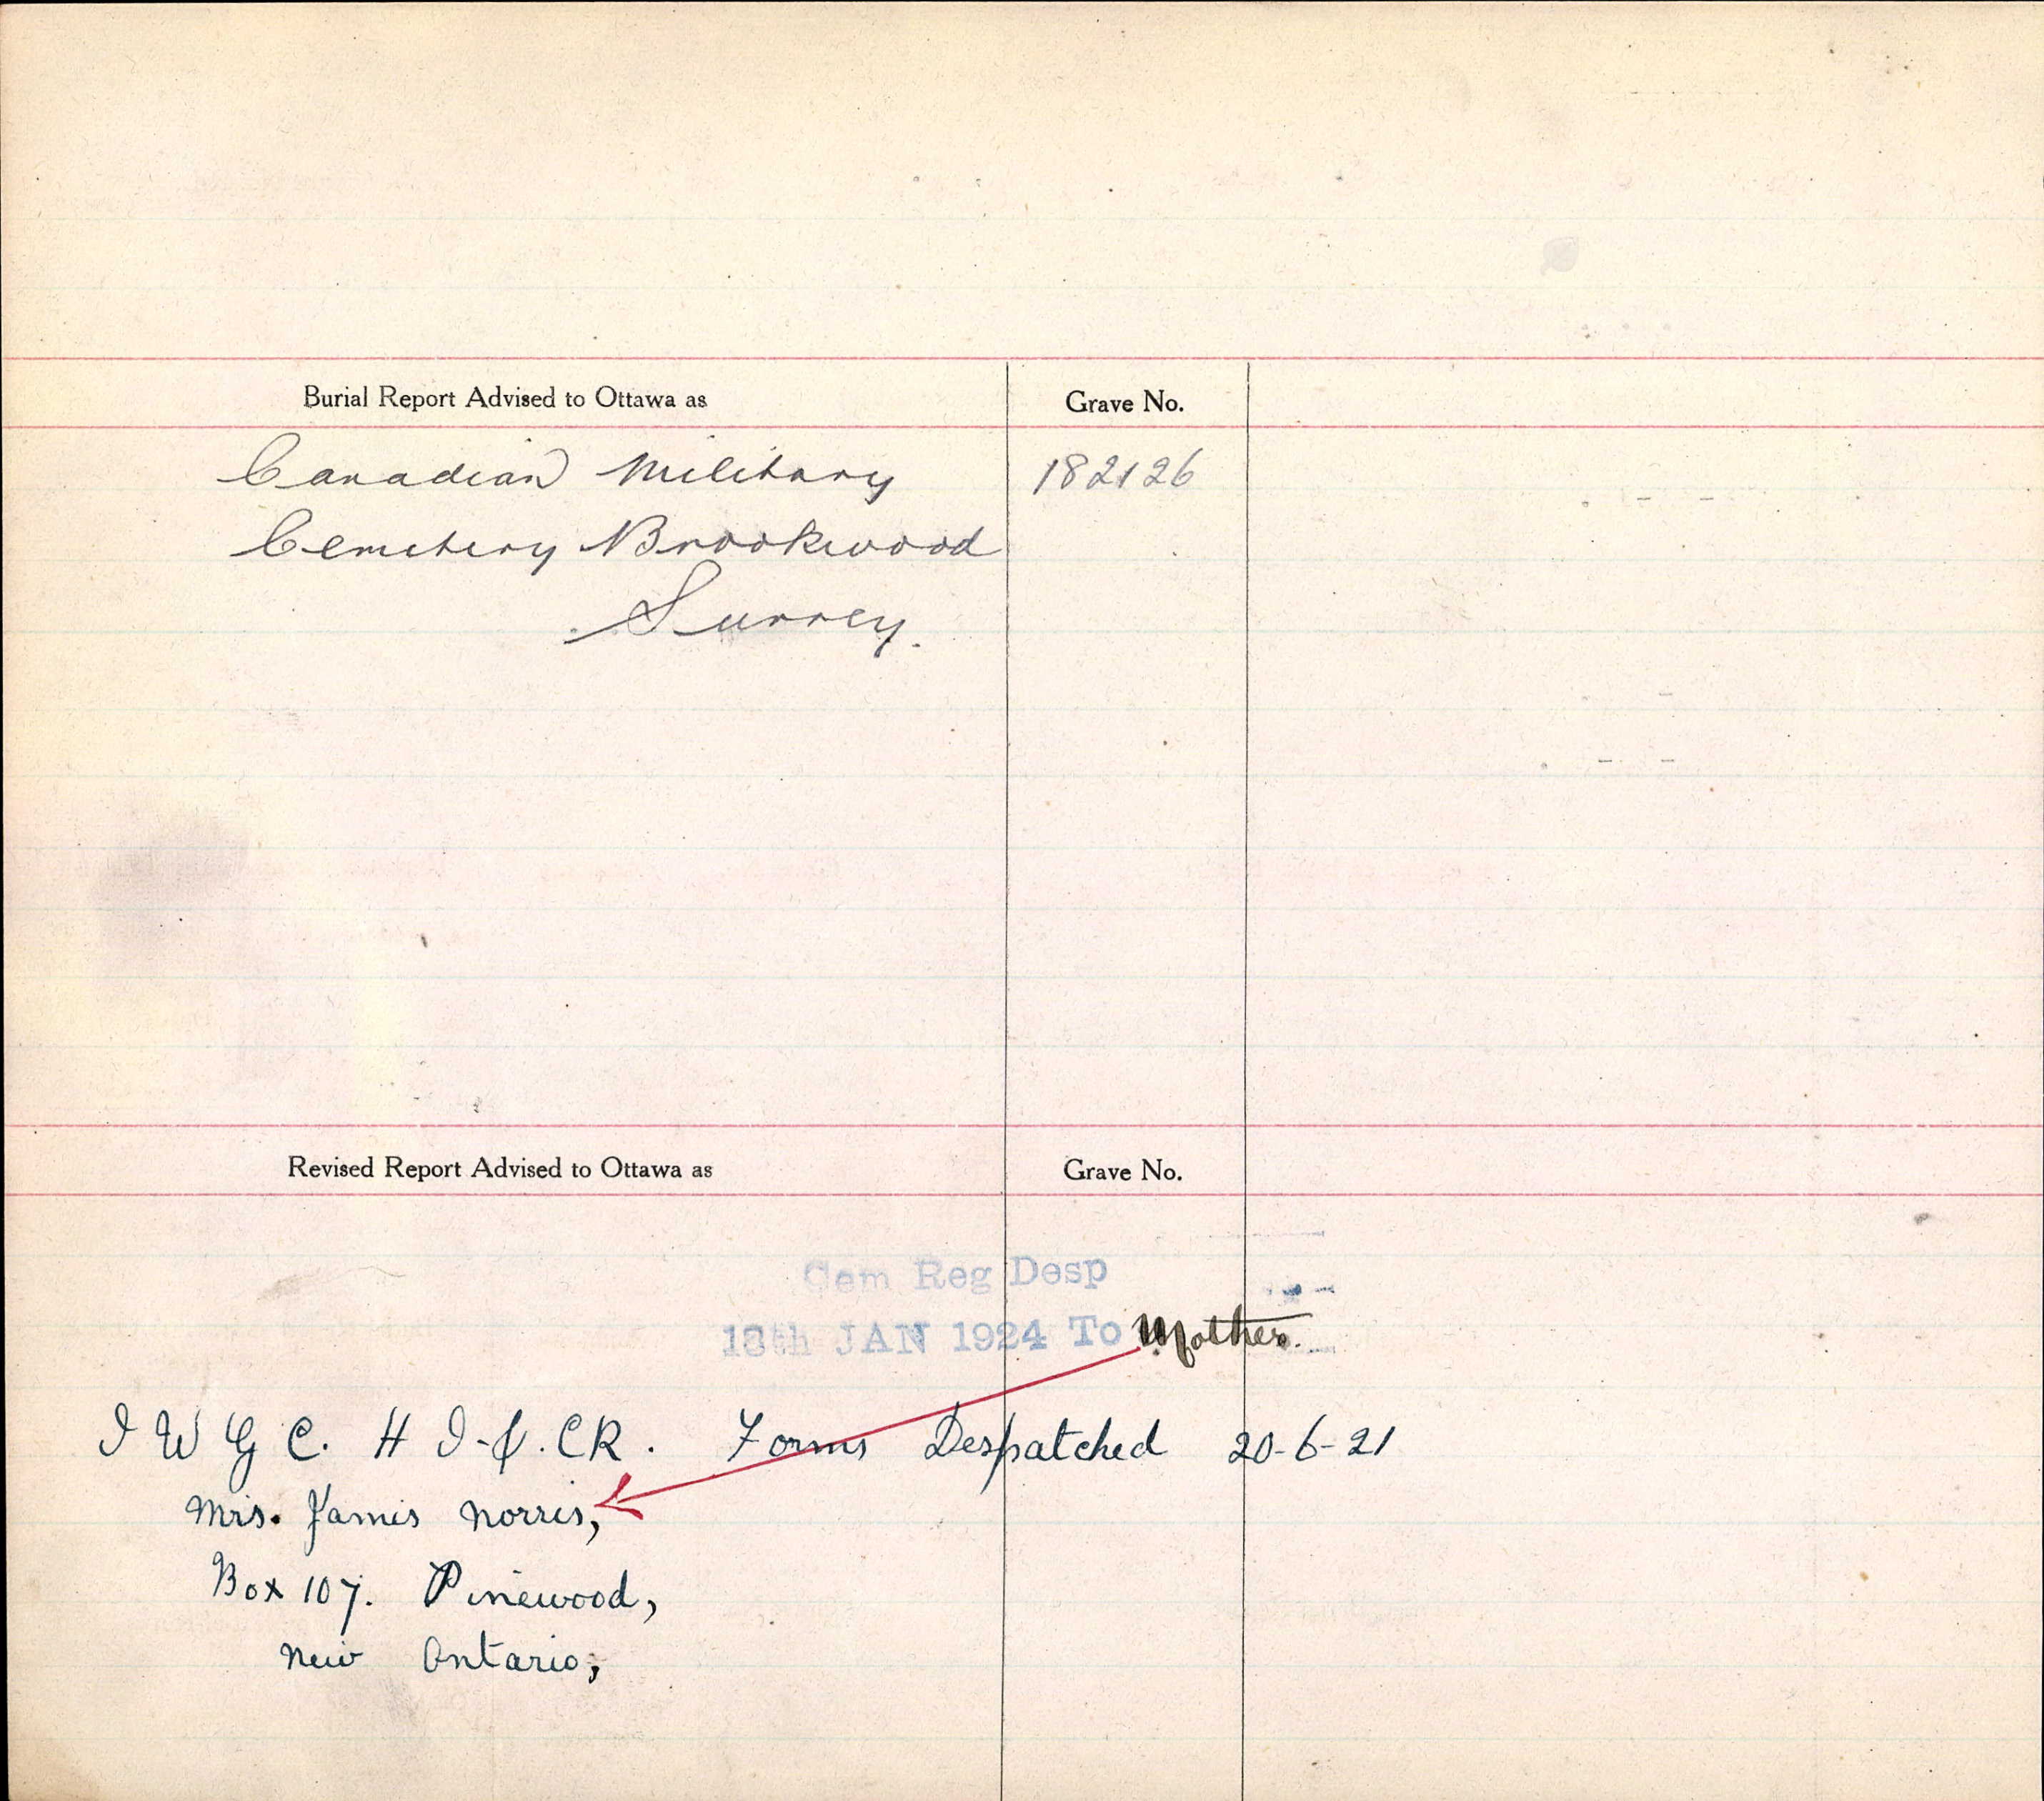 Burial Report Advised to Ottawa as Grave No.
Canadian Military 182126
Cemetery Brookwood
Surrey.
Revised Report Advised to Ottawa as Grave No.
Cem Reg Desp
18th JAN 1924 To Mother.
I W G C. H I-&.CR. Forms Despatched 20-6-21
Mrs. James Norris,
Box 107. Pinewood,
New Ontario,